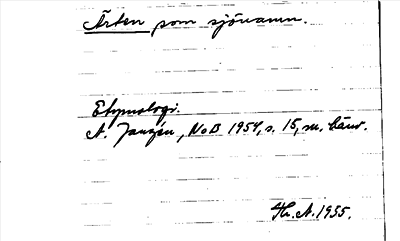 Ärten som sjönamn.
Etymologi.
A. Janzén, NoB 1954, s. 15, m. hänv.
Hr. A. 1955.